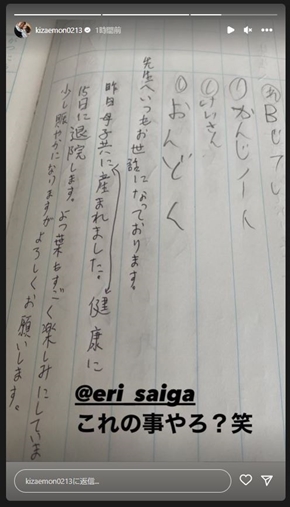 kizaemon0213 1時間前
Bじてい
①かんじノート
②けいさん
③おんどく
先生へいつもお世話になっております。
昨日母子共に産まれました。健康に
15日に退院します。よつ葉もすごく楽しみにしていま
少し賑やかになりますがよろしくお願いします。
@eri_saiga
これの事やろ？笑
kizaemon0213に返信...